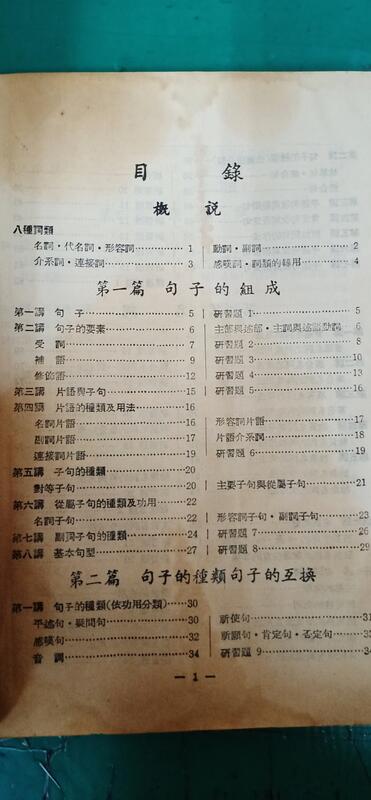 目錄
概說
八種詞類
名詞・代名詞・形容詞……………… 1 | 動詞・副詞……………… 2
介系詞・連接詞……………… 3 | 感嘆詞・詞類的轉用……………… 4
第一篇 句子的組成
第一講 句子……………… 5 | 研習題 1……………… 5
第二講 句子的要素……………… 6 | 主部與述部・主詞與述語動詞……… 6
受詞……………… 7 | 研習題 2……………… 8
補語……………… 9 | 研習題 3……………… 10
修飾語……………… 12 | 研習題 4……………… 13
第三講 片語與子句……………… 15 | 研習題 5……………… 16
第四講 片語的種類及用法……………… 16
名詞片語……………… 16 | 形容詞片語……………… 17
副詞片語……………… 17 | 片語介系詞……………… 18
連接詞片語……………… 19 | 研習題 6……………… 19
第五講 子句的種類……………… 20
對等子句……………… 20 | 主要子句與從屬子句……………… 21
第六講 從屬子句的種類及功用……… 22
名詞子句……………… 22 | 形容詞子句・副詞子句……………… 23
第七講 副詞子句的種類……………… 24 | 研習題 7……………… 26
第八講 基本句型……………… 27 | 研習題 8……………… 29
第二篇 句子的種類句子的互換
第一講 句子的種類(依功用分類)……30
平述句・疑問句……………… 30 | 祈使句……………… 31
感嘆句……………… 32 | 祈願句・肯定句・否定句……………… 33
音調……………… 34 | 研習題 9……………… 34
— 1 —